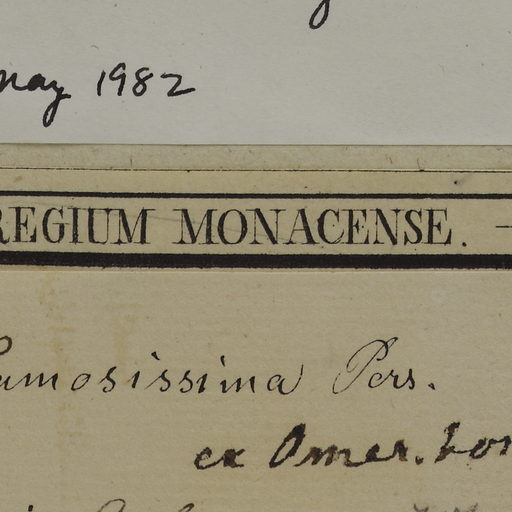 May 1982
REGIUM MONACENSE. —
amosissima Pers.
ex Amer. bor